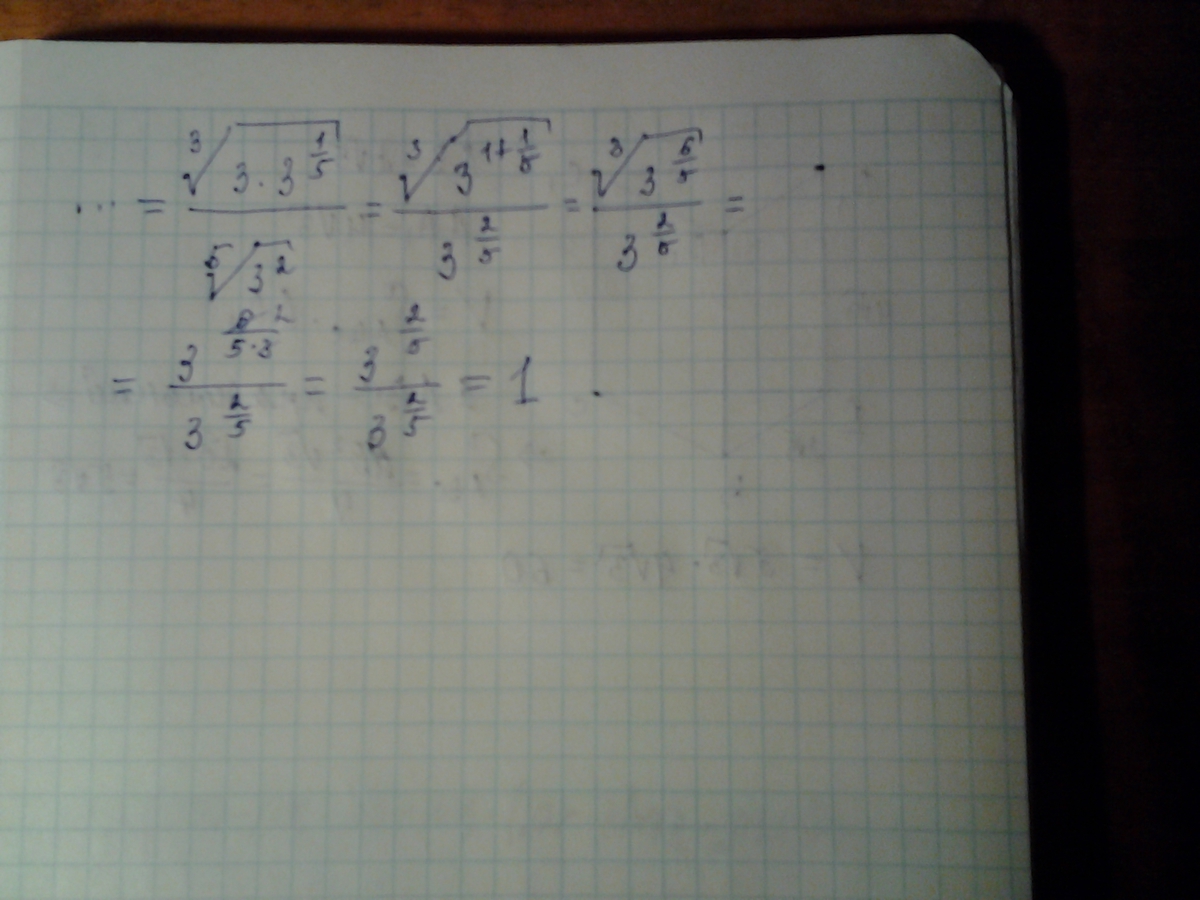 ... = \frac{\sqrt[3]{3 \cdot 3^{\frac{1}{5}}}}{\sqrt[5]{3^2}} = \frac{\sqrt[3]{3^{1+\frac{1}{5}}}}{3^{\frac{2}{5}}} = \frac{\sqrt[3]{3^{\frac{6}{5}}}}{3^{\frac{2}{5}}} =
= \frac{3^{\frac{6}{5 \cdot 3}}}{3^{\frac{2}{5}}} = \frac{3^{\frac{2}{5}}}{3^{\frac{2}{5}}} = 1